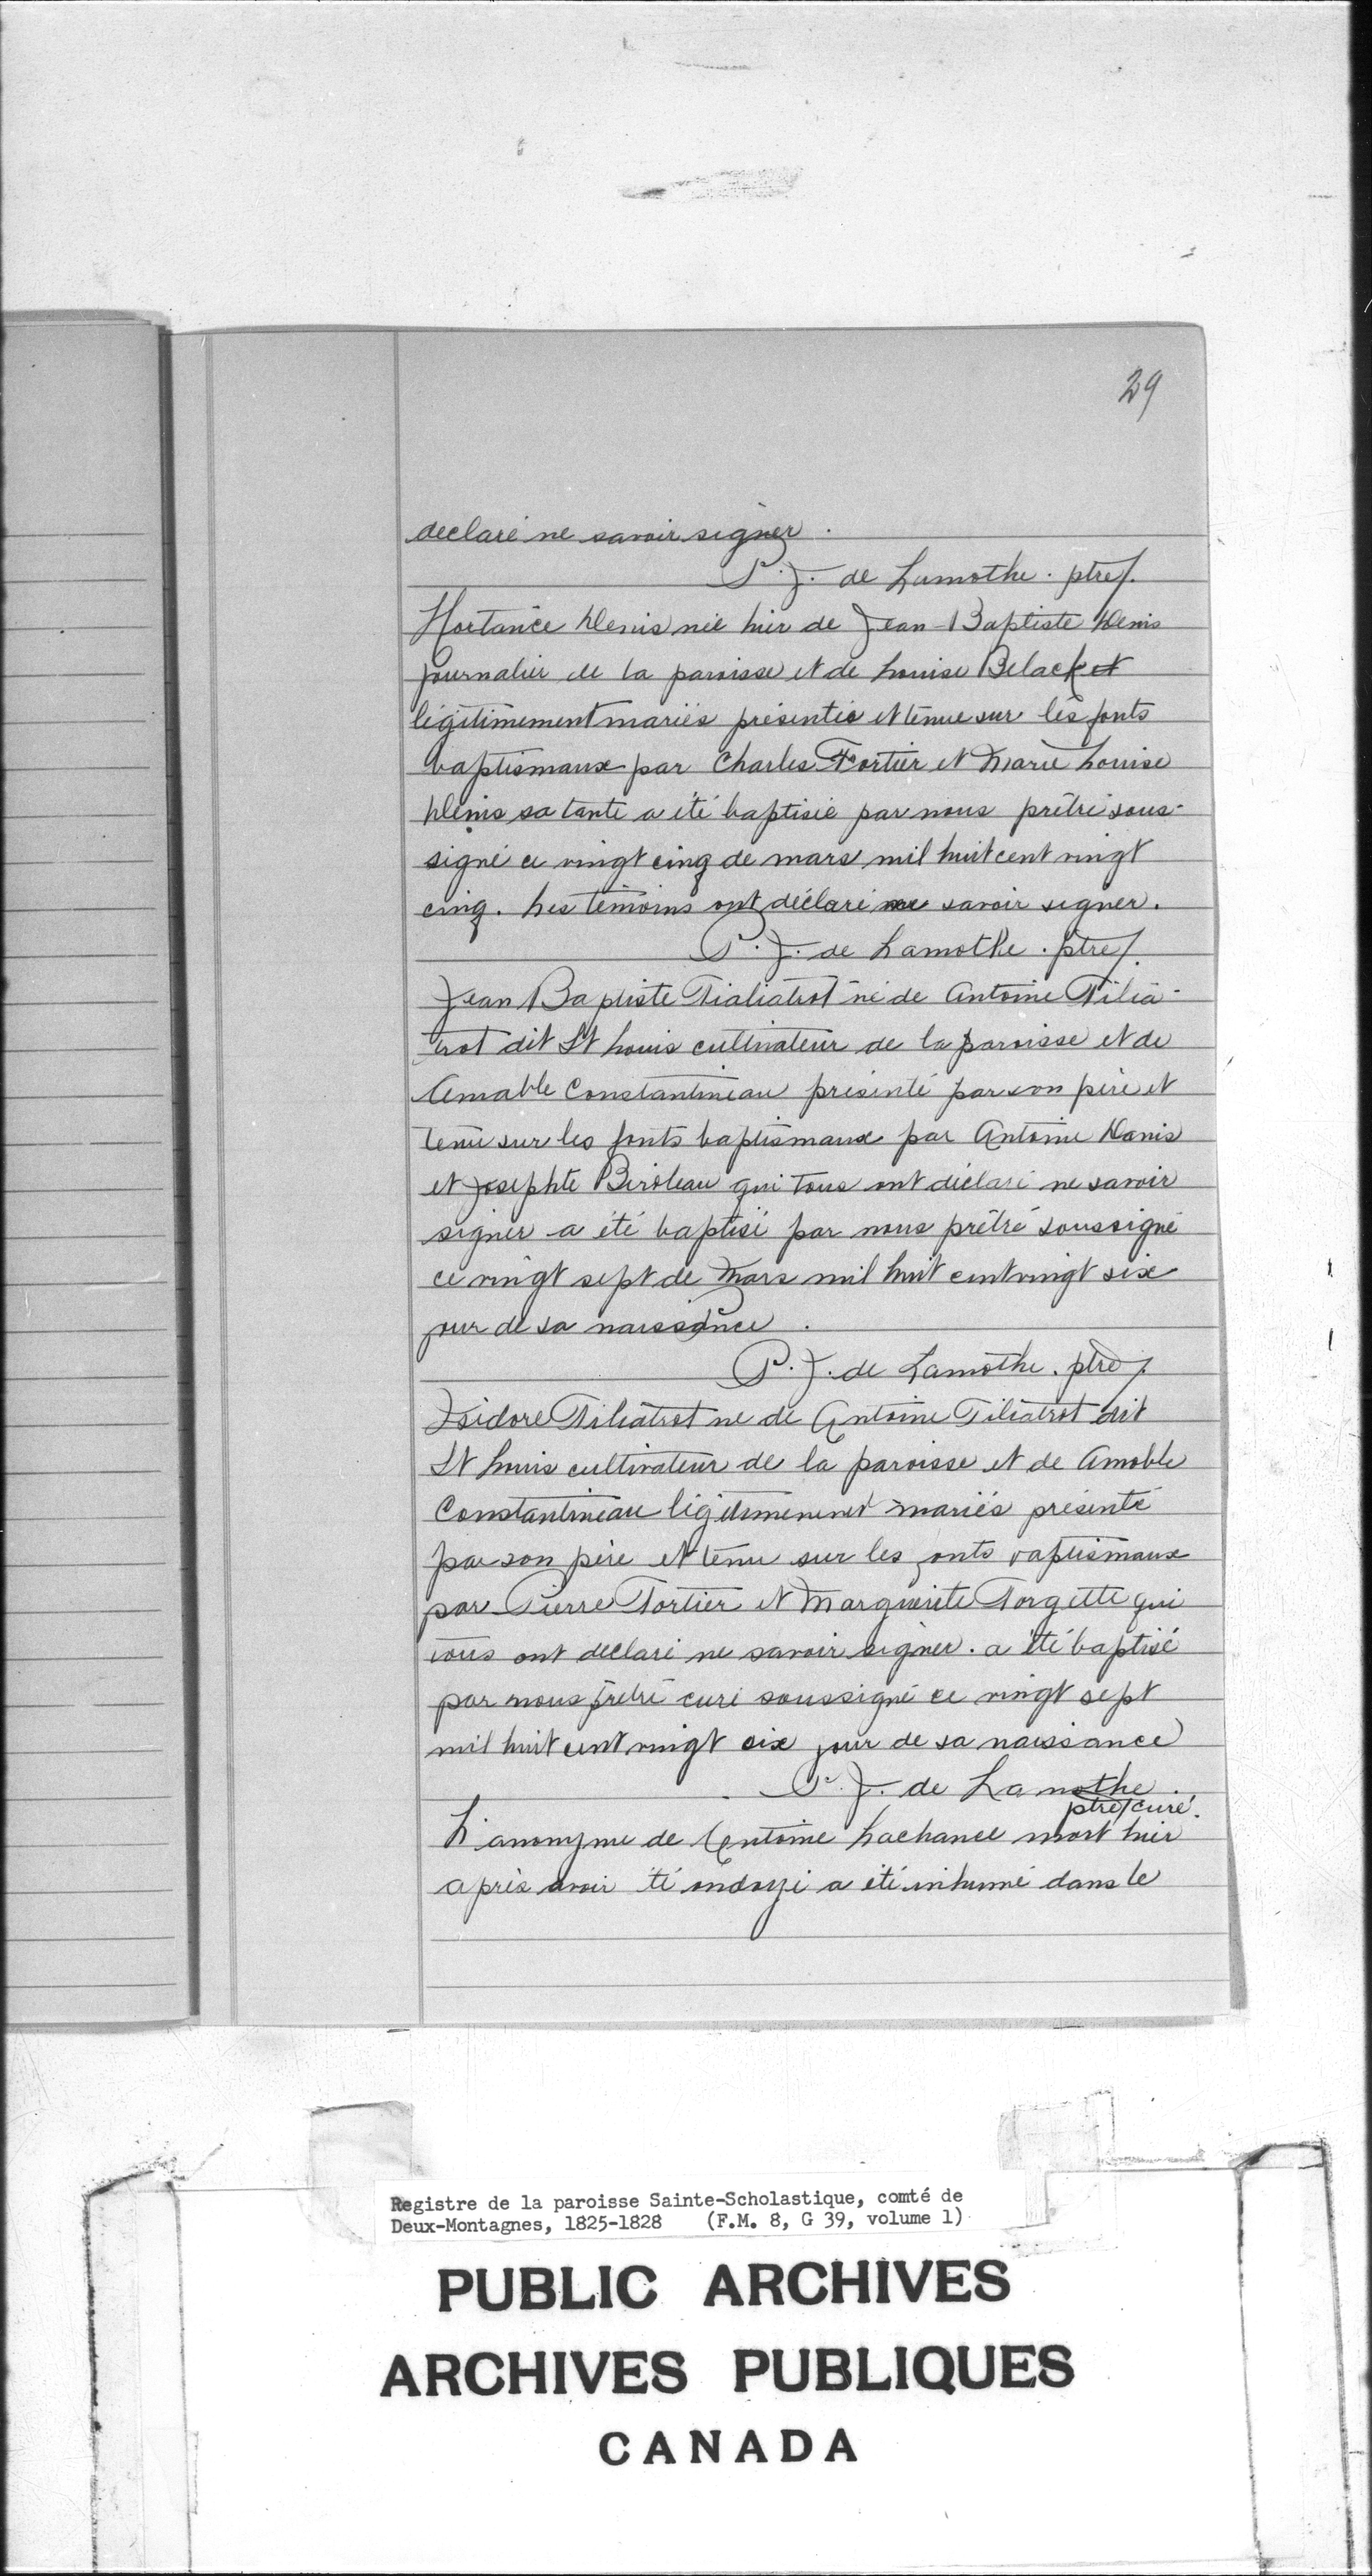 29
declaré ne savoir signer.
P. J. de Lamothe. ptre/.
Hortance Denis née hier de Jean-Baptiste Denis
journalier de la paroisse et de Louise Belack et
légitimement mariés présentée et tenue sur les fonts
baptismaux par Charles Fortier et Marie Louise
Denis sa tante a été baptisée par nous prêtre sous-
signé ce vingt cinq de mars mil huit cent vingt
cinq. Les témoins ont déclaré ne savoir signer.
P. J. de Lamothe. ptre/.
Jean Baptiste Fialiatrot né de Antoine Filia-
trot dit St Louis cultivateur de la paroisse et de
Amable Constantineau présenté par son père et
tenu sur les fonts baptismaux par Antoine Danis
et Josephte Biroleau qui tous ont déclaré ne savoir
signer a été baptisé par nous prêtre soussigné
ce vingt sept de Mars mil huit cent vingt six
jour de sa naissance.
P. J. de Lamothe. ptre/.
Isidore Filiatrot ne de Antoine Filiatrot dit
St Louis cultivateur de la paroisse et de Amable
Constantineau légitimement mariés présenté
par son père et tenu sur les fonts baptismaux
par Pierre Fortier et Marguerite Forgette qui
tous ont declaré ne savoir signer. a été baptisé
par nous prêtre curé soussigné ce vingt sept
mil huit cent vingt six jour de sa naissance
P. J. de Lamothe.
ptre/curé.
L'anonyme de Antoine Lachance mort hier
après avoir été ondoyé a été inhumé dans le
Registre de la paroisse Sainte-Scholastique, comté de
Deux-Montagnes, 1825-1828 (F.M. 8, G 39, volume 1)
PUBLIC ARCHIVES
ARCHIVES PUBLIQUES
CANADA